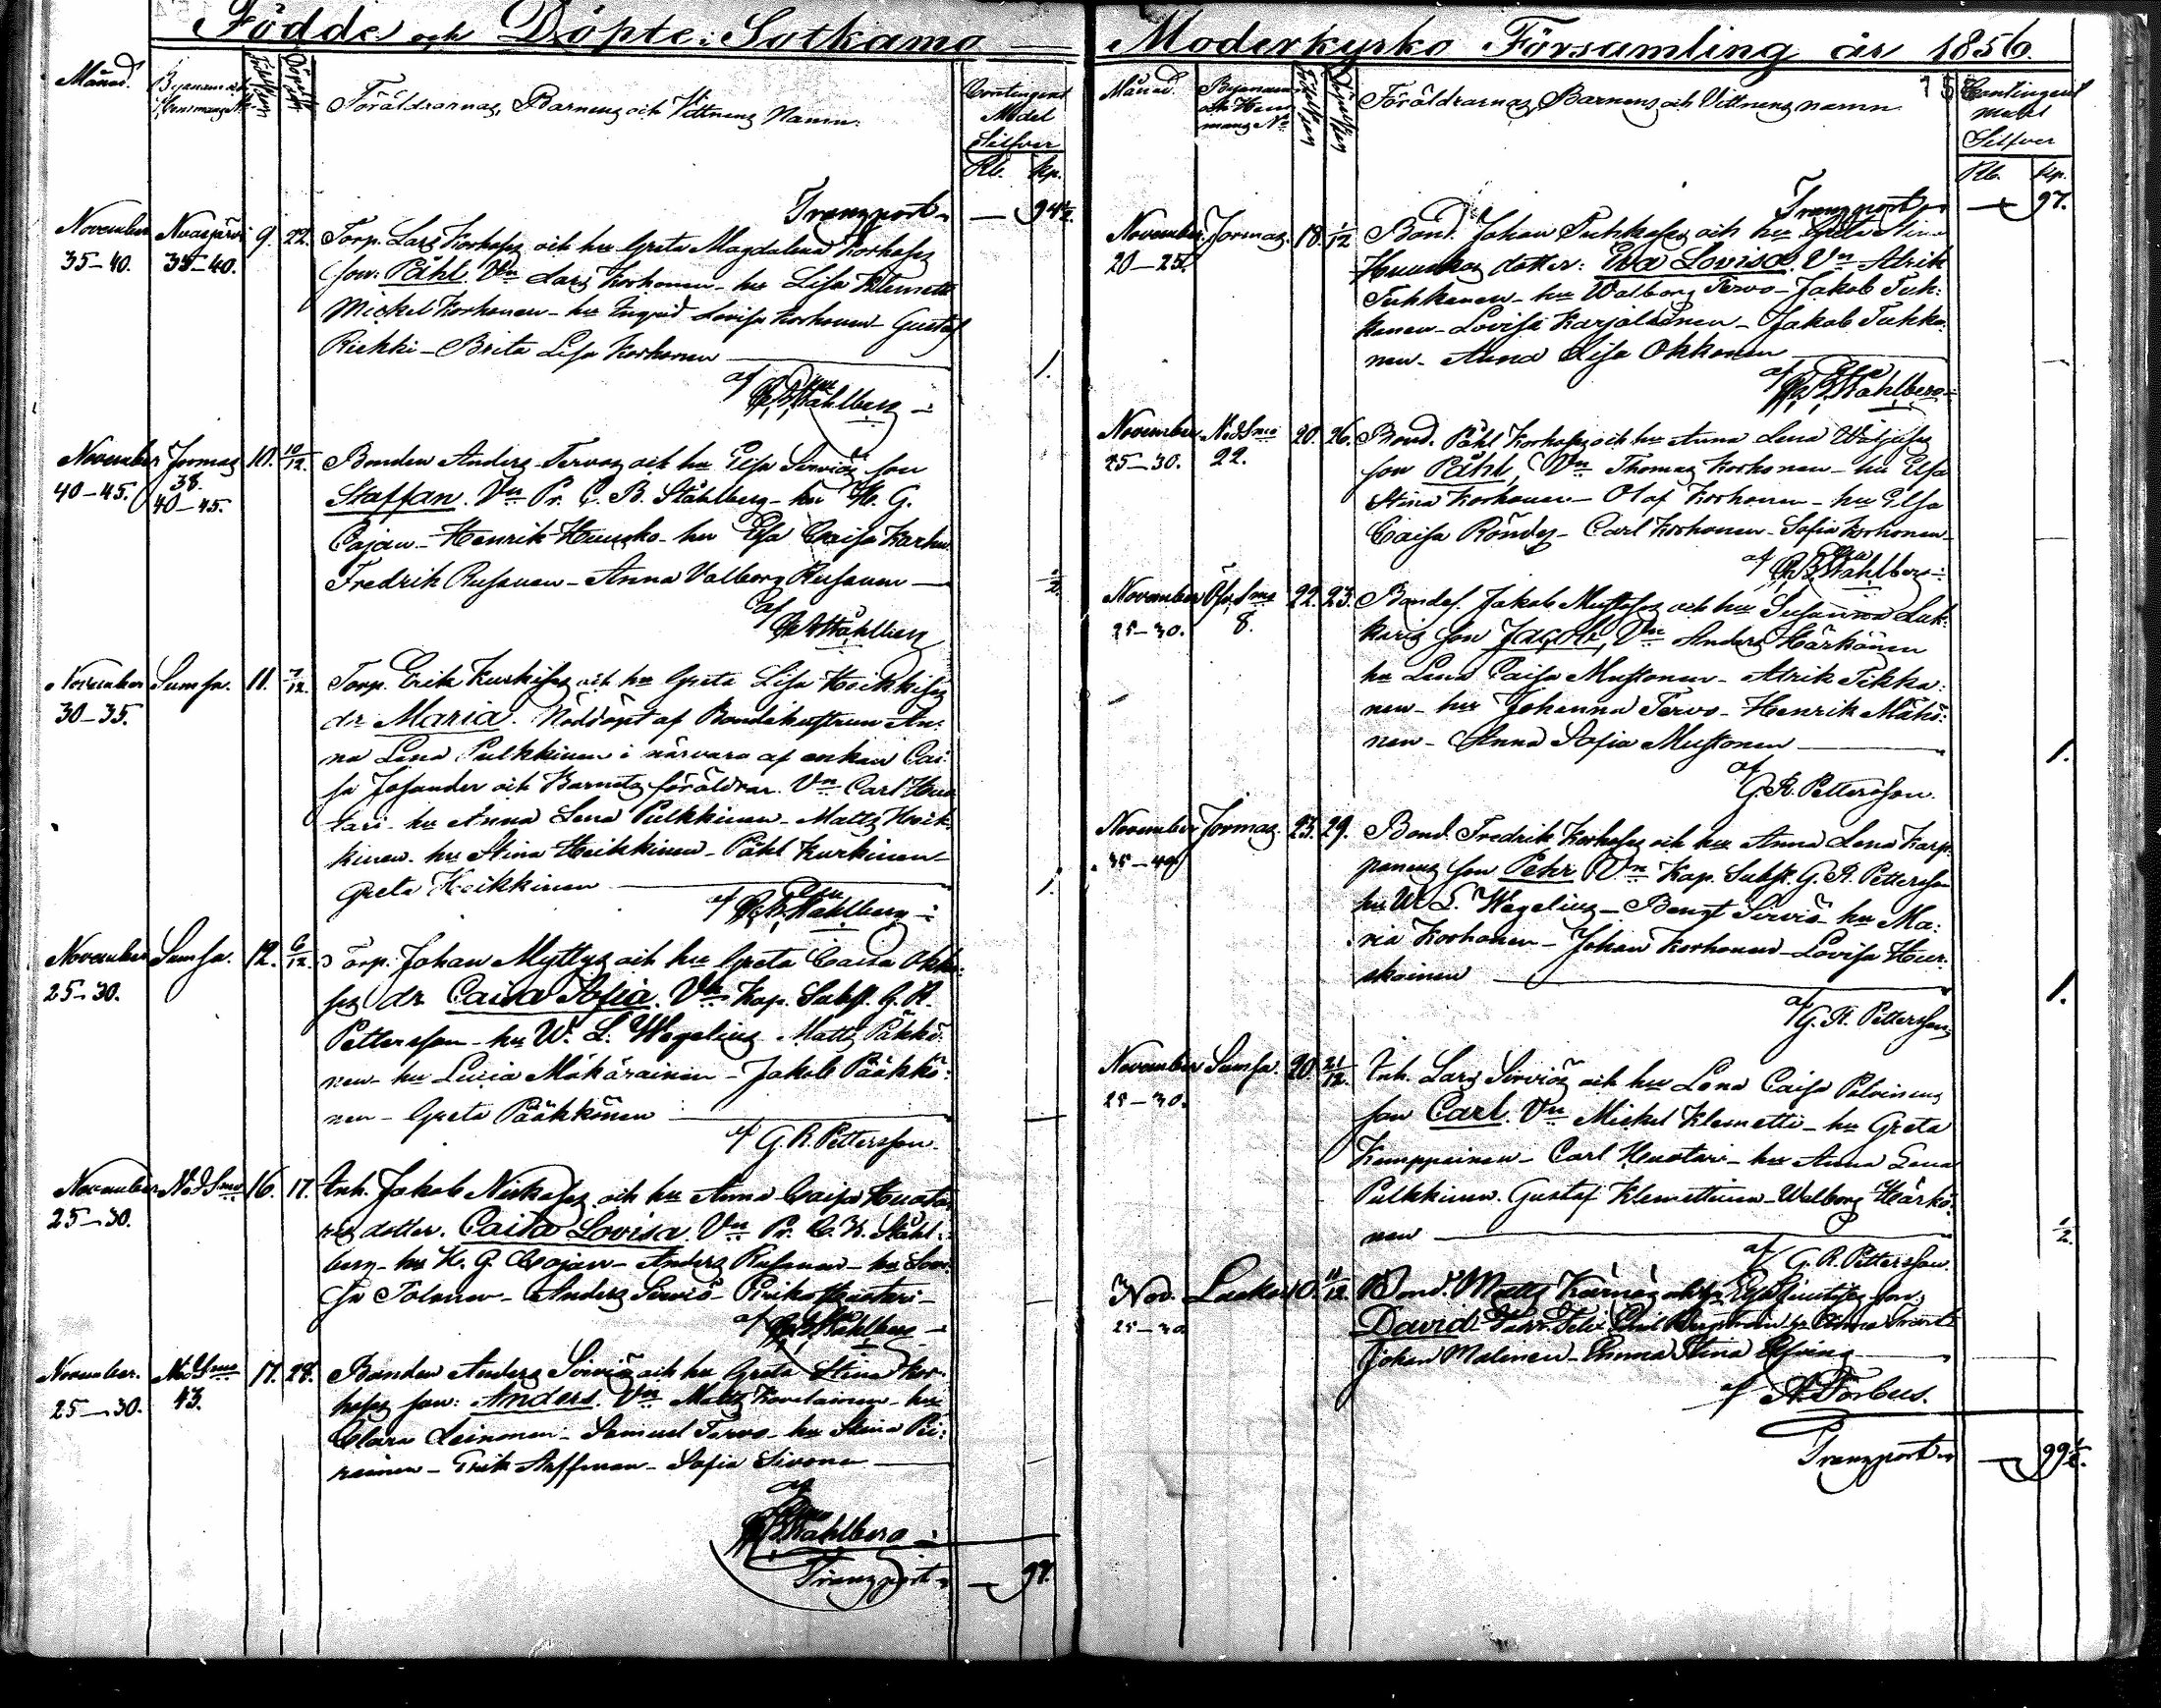 Födde och Döpte i Sotkamo
Månad.
Byanamn och Hemmans No
Födelsedag
Döpelsedag
Föräldrarnas, Barnens och Vittnens Namn.
Contingent
Medel
Silfver
Rb. kp.
Transport — 94½.
November Nuasjärvi 9. 22. Torp. Lars Korhos och hu Greta Magdalena Korhos
35–40. 35–40. son: Påhl. Vn Lars Korhonen – hu Lisa Klemetti
Mickel Korhonen – hu Ingrid Lovisa Korhonen – Gustaf
Riekki – Brita Lisa Korhonen — 1.
af
C. B. Ståhlberg
November Jormas 10. 10/12. Bonden Anders Tervos och hu Elsa Serviös son
40–45. 38. 40–45. Staffan. Vn Pr. C. B. Ståhlberg – hu H. G.
Cajan – Henrik Huusko – hu Elsa Caisa Karhu
Fredrik Rusanen – Anna Valborg Rusanen — ½
af
C. B. Ståhlberg
November Sumsa. 11. 7/12. Torp. Erik Kurkis och hu Greta Lisa Heikkis
30–35. dr Maria. Nöddöpt af Bondehustrun An:
na Lena Pulkkinen i närvaro af enkan Cai:
sa Josander och Barnets föräldrar. Vn Carl Huo
tari – hu Anna Lena Pulkkinen – Matts Heik:
kinen – hu Stina Heikkinen – Påhl Kurkinen –
Greta Heikkinen — 1.
af C. B. Ståhlberg
November Sumsa. 12. 6/12. Torp. Johan Myttys och hu Greta Caisa Okko:
25–30. s dr Caisa Sofia. Vn Kap. Subst. G. R.
Pettersson – hu W. L. Wegelius – Matts Pääkkö:
nen – hu Lucia Mäkäräinen – Jakob Pääkkö:
nen – Greta Pääkkönen —
af G. R. Pettersson.
November Ned Smo 16. 17. Inh. Jakob Niskas och hu Anna Caisa Huota
25–30. ris dotter. Caisa Lovisa. Vn Pr. C. B. Ståhl:
berg – hu H. G. Cajan – Anders Rusanen – hu Lovi:
sa Tolonen – Anders Serviö – Huotari –
af C. B. Ståhlberg
November. Ned Smo 17. 28. Bonden Anders Serviö och hu Greta Stina Kor:
25–30. 43. hos son: Anders. Vn Matts Kovalainen – hu
Clara Leinonen – Samuel Tervo – hu Stina Pii:
rainen – Erik – Sofia Sivonen —
af
C. B. Ståhlberg
Transport — 97.
Moderkyrko Församling år 1856.
Månad. Byanamn och Hemmans No Födelsedag Döpelsedag
Föräldrarnas, Barnens och Vittnens namn
Contingent
medel
Silfver
Rb. kp.
Transport — 97.
November Jormas. 18. 1/12 Bond. Johan Tuhkas och hu Greta Stina
20–25. Huuskos dotter: Eva Lovisa. Vn Alrik
Tuhkanen – hu Walborg Tervo – Jakob Tuh:
kanen – Lovisa Karjalainen – Jakob Tuhka:
nen – Anna Lisa Okkonen —
af
C. B. Ståhlberg
November Ned Smo 20. 26. Bond. Påhl Korhos och hu Anna Lena Väyris
25–30. 22. son Påhl, Vn Thomas Korhonen – hu Elsa
Stina Korhonen – Olof Korhonen – hu Elsa
Caisa Rönds – Carl Korhonen – Sofia Korhonen –
af C. B. Ståhlberg
November Öfv. Smo 22. 23. Bondes. Jakob Mustos och hu Susanna Luk:
25–30. 8. karis son Jacob, Vn Anders Härkönen
hu Lena Caisa Mustonen – Alrik Tikka:
nen – hu Johanna Tervo – Henrik Mähö:
nen – Anna Sofia Mustonen — 1.
af
G. R. Pettersson.
November Jormas. 23. 29. Bond. Fredrik Korhos och hu Anna Lena Karp:
35–40 panens son Pehr Vn Kap. Subst. G. R. Pettersson
hu W. L. Wegelius – Bengt Serviö – hu Ma:
ria Korhonen – Johan Korhonen – Lovisa Heis:
kainen — 1.
af
G. R. Pettersson
November Sumsa. 20. 21/12. Inh. Lars Serviös och hu Lena Caisa Polvinens
25–30. son Carl. Vn Mickel Klemetti – hu Greta
Kemppainen – Carl Huotari – hu Anna Lena
Pulkkinen. Gustaf Klemettinen – Walborg Härkö:
nen — ½
af G. R. Pettersson.
Nov. 10. 11/12. Bond. Matts Kärnäs och son:
25–30 David
Johan Malinen – Anna Stina —
af A. Forbus.
Transport — 99½.